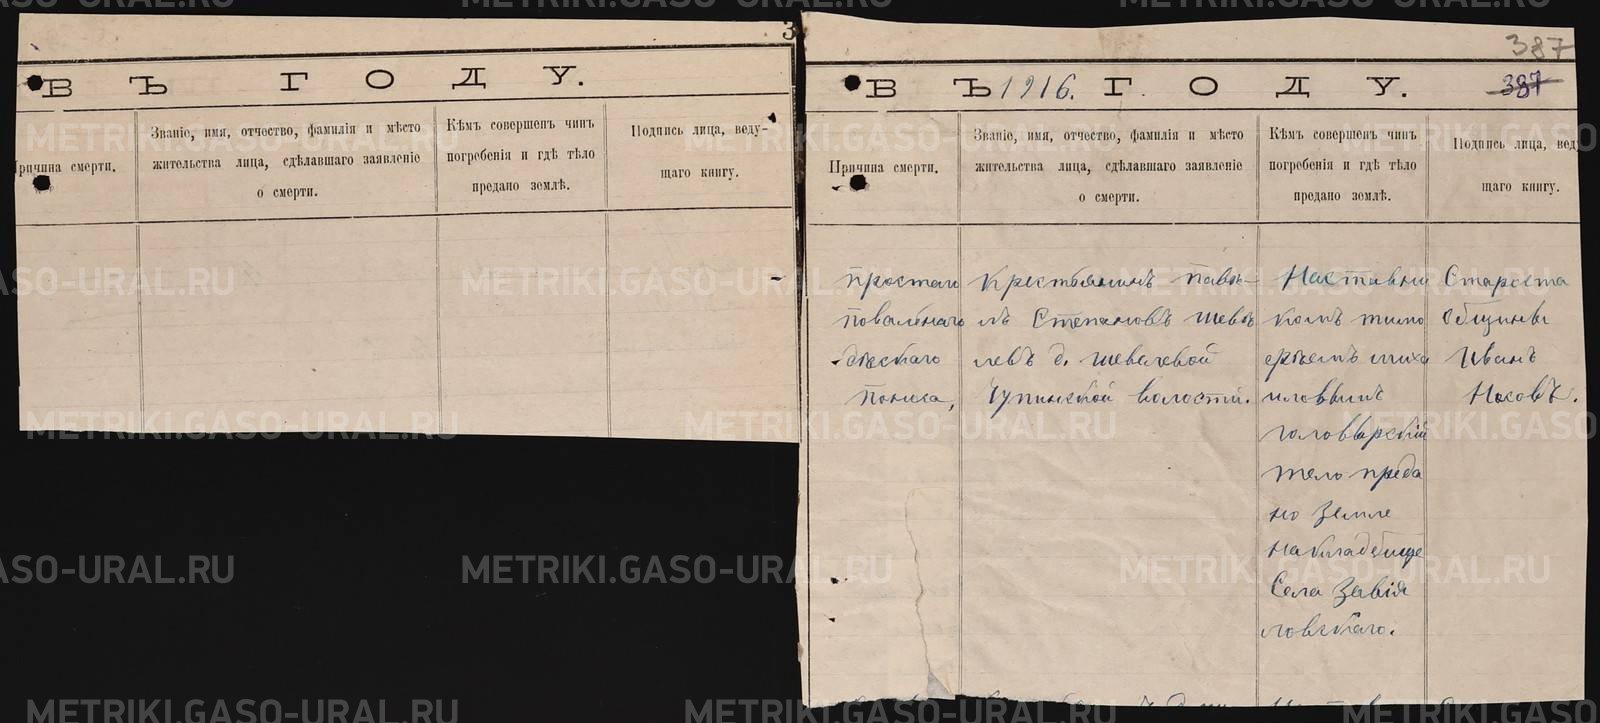 ВЪ ГОДУ.
Причина смерти.
Званіе, имя, отчество, фамилія и мѣсто
жительства лица, сдѣлавшаго заявленіе
о смерти.
Кѣмъ совершенъ чинъ
погребенія и гдѣ тѣло
предано землѣ.
Подпись лица, веду-
щаго книгу.
387
387
ВЪ 1916. ГОДУ.
Причина смерти.
Званіе, имя, отчество, фамилія и мѣсто
жительства лица, сдѣлавшаго заявленіе
о смерти.
Кѣмъ совершенъ чинъ
погребенія и гдѣ тѣло
предано землѣ.
Подпись лица, вед
щаго книгу.
простаго
поваленаго
поноса,
Крестьянинъ Павь-
лъ Степановъ Шевѣ
левъ д. Шевелевой
Чупинской волости.
Наставни
комъ тимо
михаиловымъ
тело преда
но земле
на кладбище
Села Завія
ловскаго.
Староста
общины
Иванъ
Носовъ.
METRIKI.GASO-URAL.RU